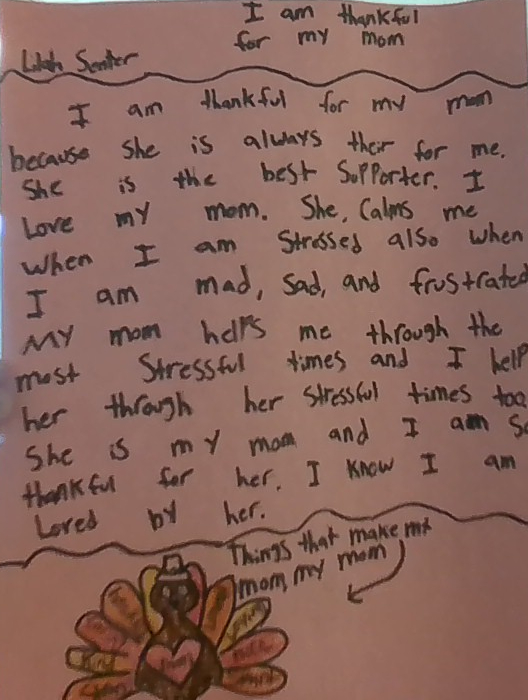 I am thankful
for my mom
Lilah Senter
I am thankful for my mom
because she is always their for me.
She is the best Supporter. I
Love my mom. She, Calms me
when I am Stressed also when
I am mad, sad, and frustrated
My mom helps me through the
most Stressful times and I help
her through her stressful times too
She is my mom and I am So
thankful for her. I know I am
Loved by her.
Things that make my
mom, my mom
Kind
mom